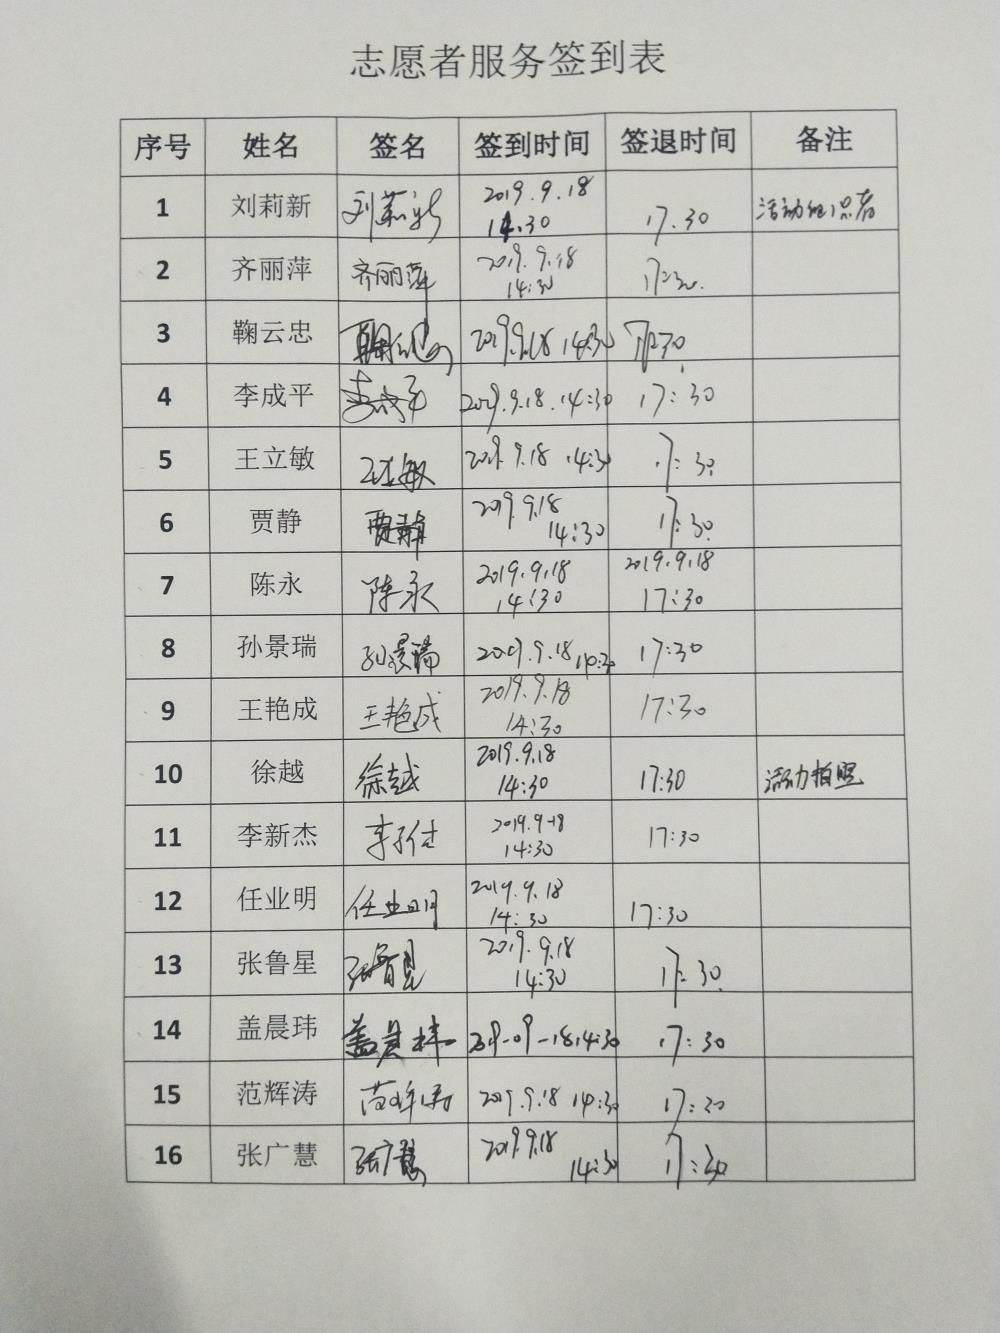 志愿者服务签到表
序号 姓名 签名 签到时间 签退时间 备注
1 刘莉新 刘莉新 2019.9.18 14.30 17.30 活动组织者
2 齐丽萍 齐丽萍 2019.9.18 14:30 17:30.
3 鞠云忠 鞠云忠 2019.9.18 14:30 17:30
4 李成平 李成平 2019.9.18.14:30 17:30
5 王立敏 王立敏 2019.9.18 14:30 17:30
6 贾静 贾静 2019.9.18 14:30 17:30
7 陈永 陈永 2019.9.18 14:30 2019.9.18 17:30
8 孙景瑞 孙景瑞 2019.9.18 14:30 17:30
9 王艳成 王艳成 2019.9.18 14:30 17:30
10 徐越 徐越 2019.9.18 14:30 17:30 活动拍照
11 李新杰 2019.9-18 14:30 17:30
12 任业明 任业明 2019.9.18 14:30 17:30
13 张鲁星 张鲁星 2019.9.18 14:30 17:30
14 盖晨玮 盖晨玮 2019-09-18 14:30 17:30
15 范辉涛 范辉涛 2019.9.18 14:30 17:30
16 张广慧 张广慧 2019.9.18 14:30 17:30